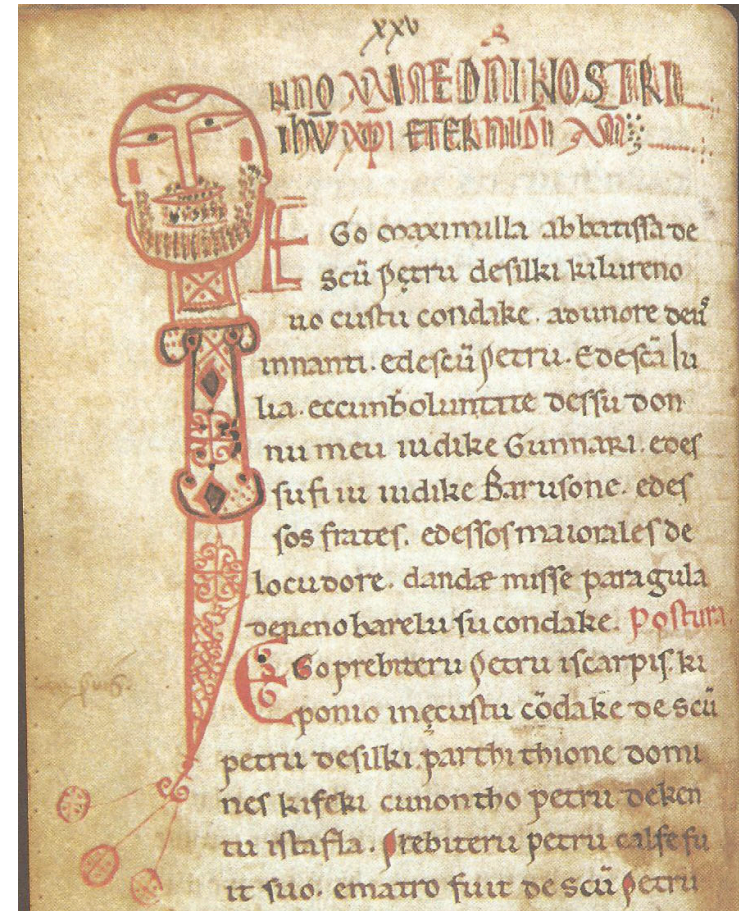 xxv
IN NOMINE DNI NOSTRI
IHV XPI ETERNI DI AM
EGo maximilla abbatissa de
scũ petru desilki kilureno
uo custu condake. adunore deu
innanti. edescũ petru. Edescã Iu
lia. eccunboluntate dessu don
nu meu iudike Gunnari. edes
su fiiu iudike Barusone. edes
sos frates. edessos maiorales de
locudore. dandæ misse paragula
derenobarelu su condake. Postura.
EGo prebiteru petru iscarpis ki
ponio inęcustu cõdake de scũ
petru desilki. parthi thione domi
nes kifeki cunontho petru deken
tu istafla. prebiteru petru calfe fu
it suo. ematro fuit de scũ petru